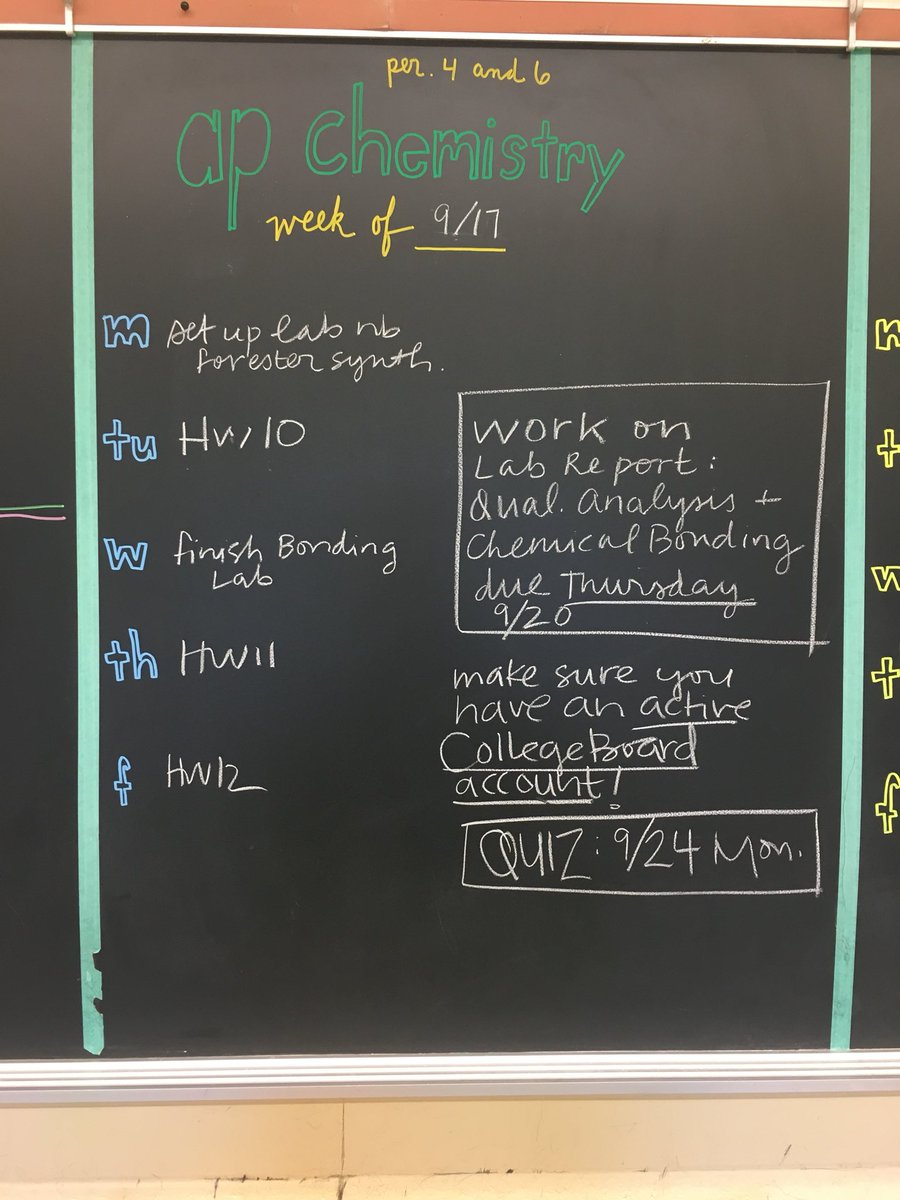 per. 4 and 6
ap chemistry
week of 9/17
m set up lab nb
forester synth.
tu HW10
w finish Bonding
Lab
th HW11
f HW12
work on
Lab Report:
Qual. Analysis +
Chemical Bonding
due Thursday
9/20
make sure you
have an active
CollegeBoard
account!
QUIZ: 9/24 Mon.
t
w
t
f